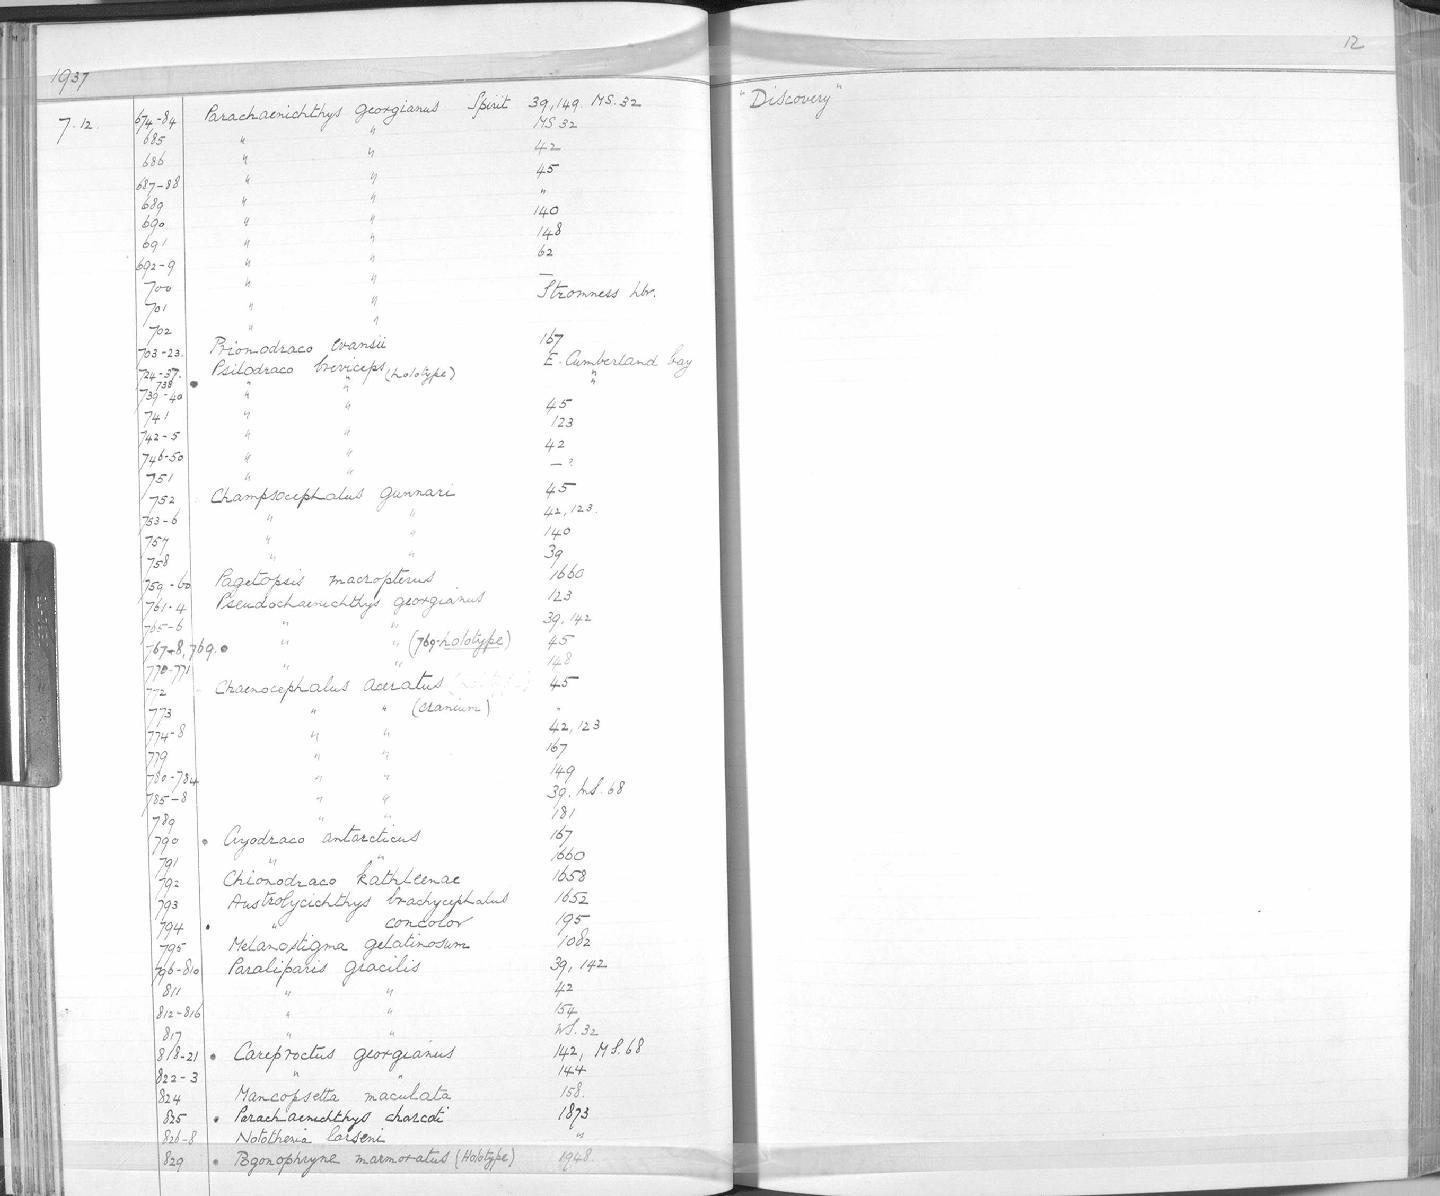 1937
12
7.12. 674-84 Parachaenichthys georgianus Spirit 39, 149. MS.32 "Discovery"
685 " " MS 32
686 " " 42
687-88 " " 45
689 " " "
690 " " 140
691 " " 148
692-9 " " 62
700 " " —
701 " " Stromness hbr.
702 " "
703-23. Prionodraco evansii 167
724-37. Psilodraco breviceps E. Cumberland bay
738 • " " (holotype) "
739-40 " " "
741 " " 45
742-5 " " 123
746-50 " " 42
751 " " —?
752 Champsocephalus gunnari 45
753-6 " " 42, 123.
757 " " 140
758 " " 39
759-60 Pagetopsis macropterus 1660
761-4 Pseudochaenichthys georgianus 123
765-6 " " 39, 142
767-8, 769. • " " (769-holotype) 45
770-771 " " 148
772 Chaenocephalus aceratus 45
773 " " (cranium) "
774-8 " " 42, 123
779 " " 167
780-784 " " 149
785-8 " " 39. WS.68
789 " " 181
790 • Cryodraco antarcticus 167
791 " " 1660
792 Chionodraco kathleenae 1658
793 Austrolycichthys brachycephalus 1652
794 • " concolor 195
795 Melanostigma gelatinosum 1082
796-810 Paraliparis gracilis 39, 142
811 " " 42
812-816 " " 154
817 " " WS.32
818-21 • Careproctus georgianus 142, MS.68
822-3 " " 144
824 Mancopsetta maculata 158.
825 • Parachaenichthys charcoti 1873
826-8 Notothenia larseni "
829 • Pogonophryne marmoratus (Holotype) 1948.